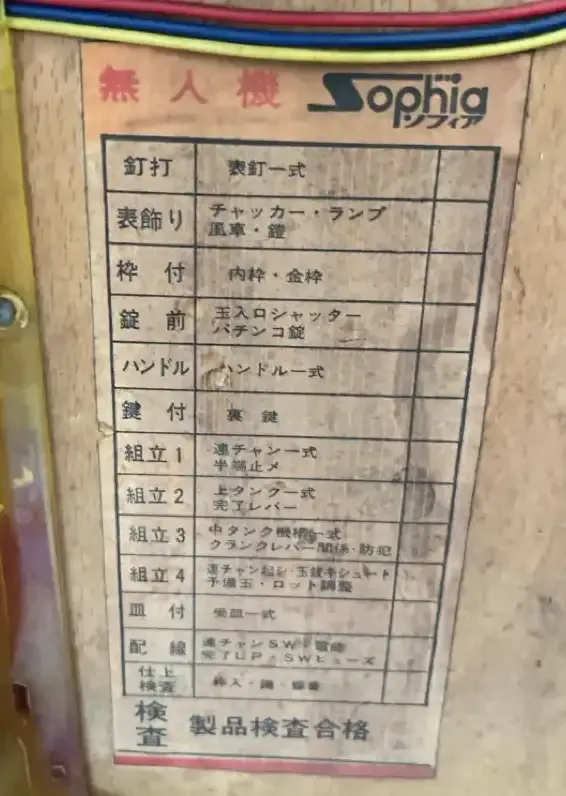 無人機 Sophia
ソフィア
釘打 表釘一式
表飾り チャッカー・ランプ
風車・鎧
枠付 内枠・金枠
錠前 玉入口シャッター
パチンコ錠
ハンドル ハンドル一式
鍵付 裏鍵
組立1 連チャン一式
半端止メ
組立2 上タンク一式
完了レバー
組立3 中タンク機構一式
クランクレバー関係・防犯
組立4 連チャン起シ・玉鋲キシュート
予備玉・ロット調整
皿付 受皿一式
配線 連チャンSW・電線
完了UP・SWヒューズ
仕上
検査 枠入・調
検査 製品検査合格